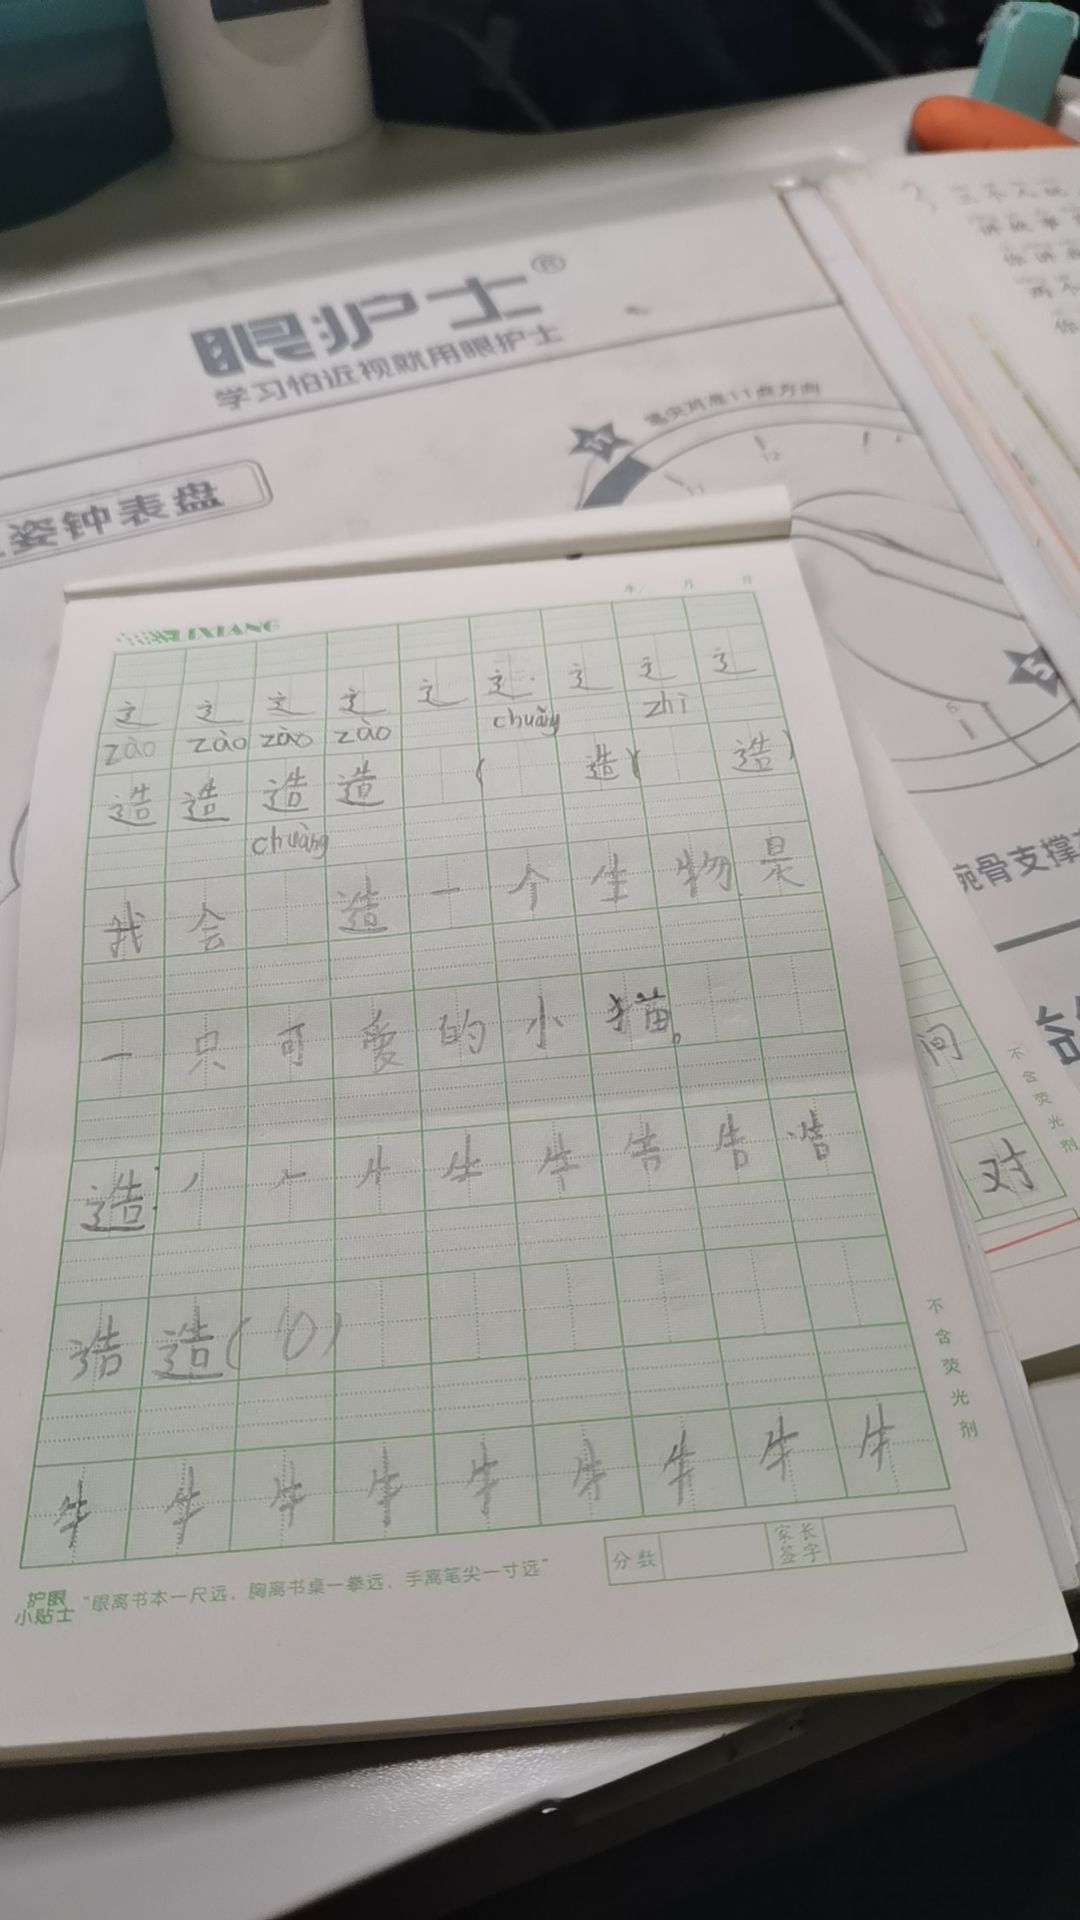 眼护士®
学习怕近视就用眼护士
姿钟表盘
笔尖对准11点方向
11
12
11
5
6
腕骨支撑
三个人玩
讲故事
你讲
两个
你
LIXIANG
年 月 日
辶 辶 辶 辶 辶 辶 辶 辶 辶
zào zào zào zào chuàng zhì
造 造 造 造 ( 造)( 造)
chuàng
我 会 造 一 个 生 物 是
一 只 可 爱 的 小 猫。
造: 丿 𠂉 牛 告 告
造(10)
牛 牛 牛 牛 牛 牛 牛 牛 牛
分数 家长签字
护眼小贴士 “眼离书本一尺远、胸离书桌一拳远、手离笔尖一寸远”
不含荧光剂
间
对
不含荧光剂